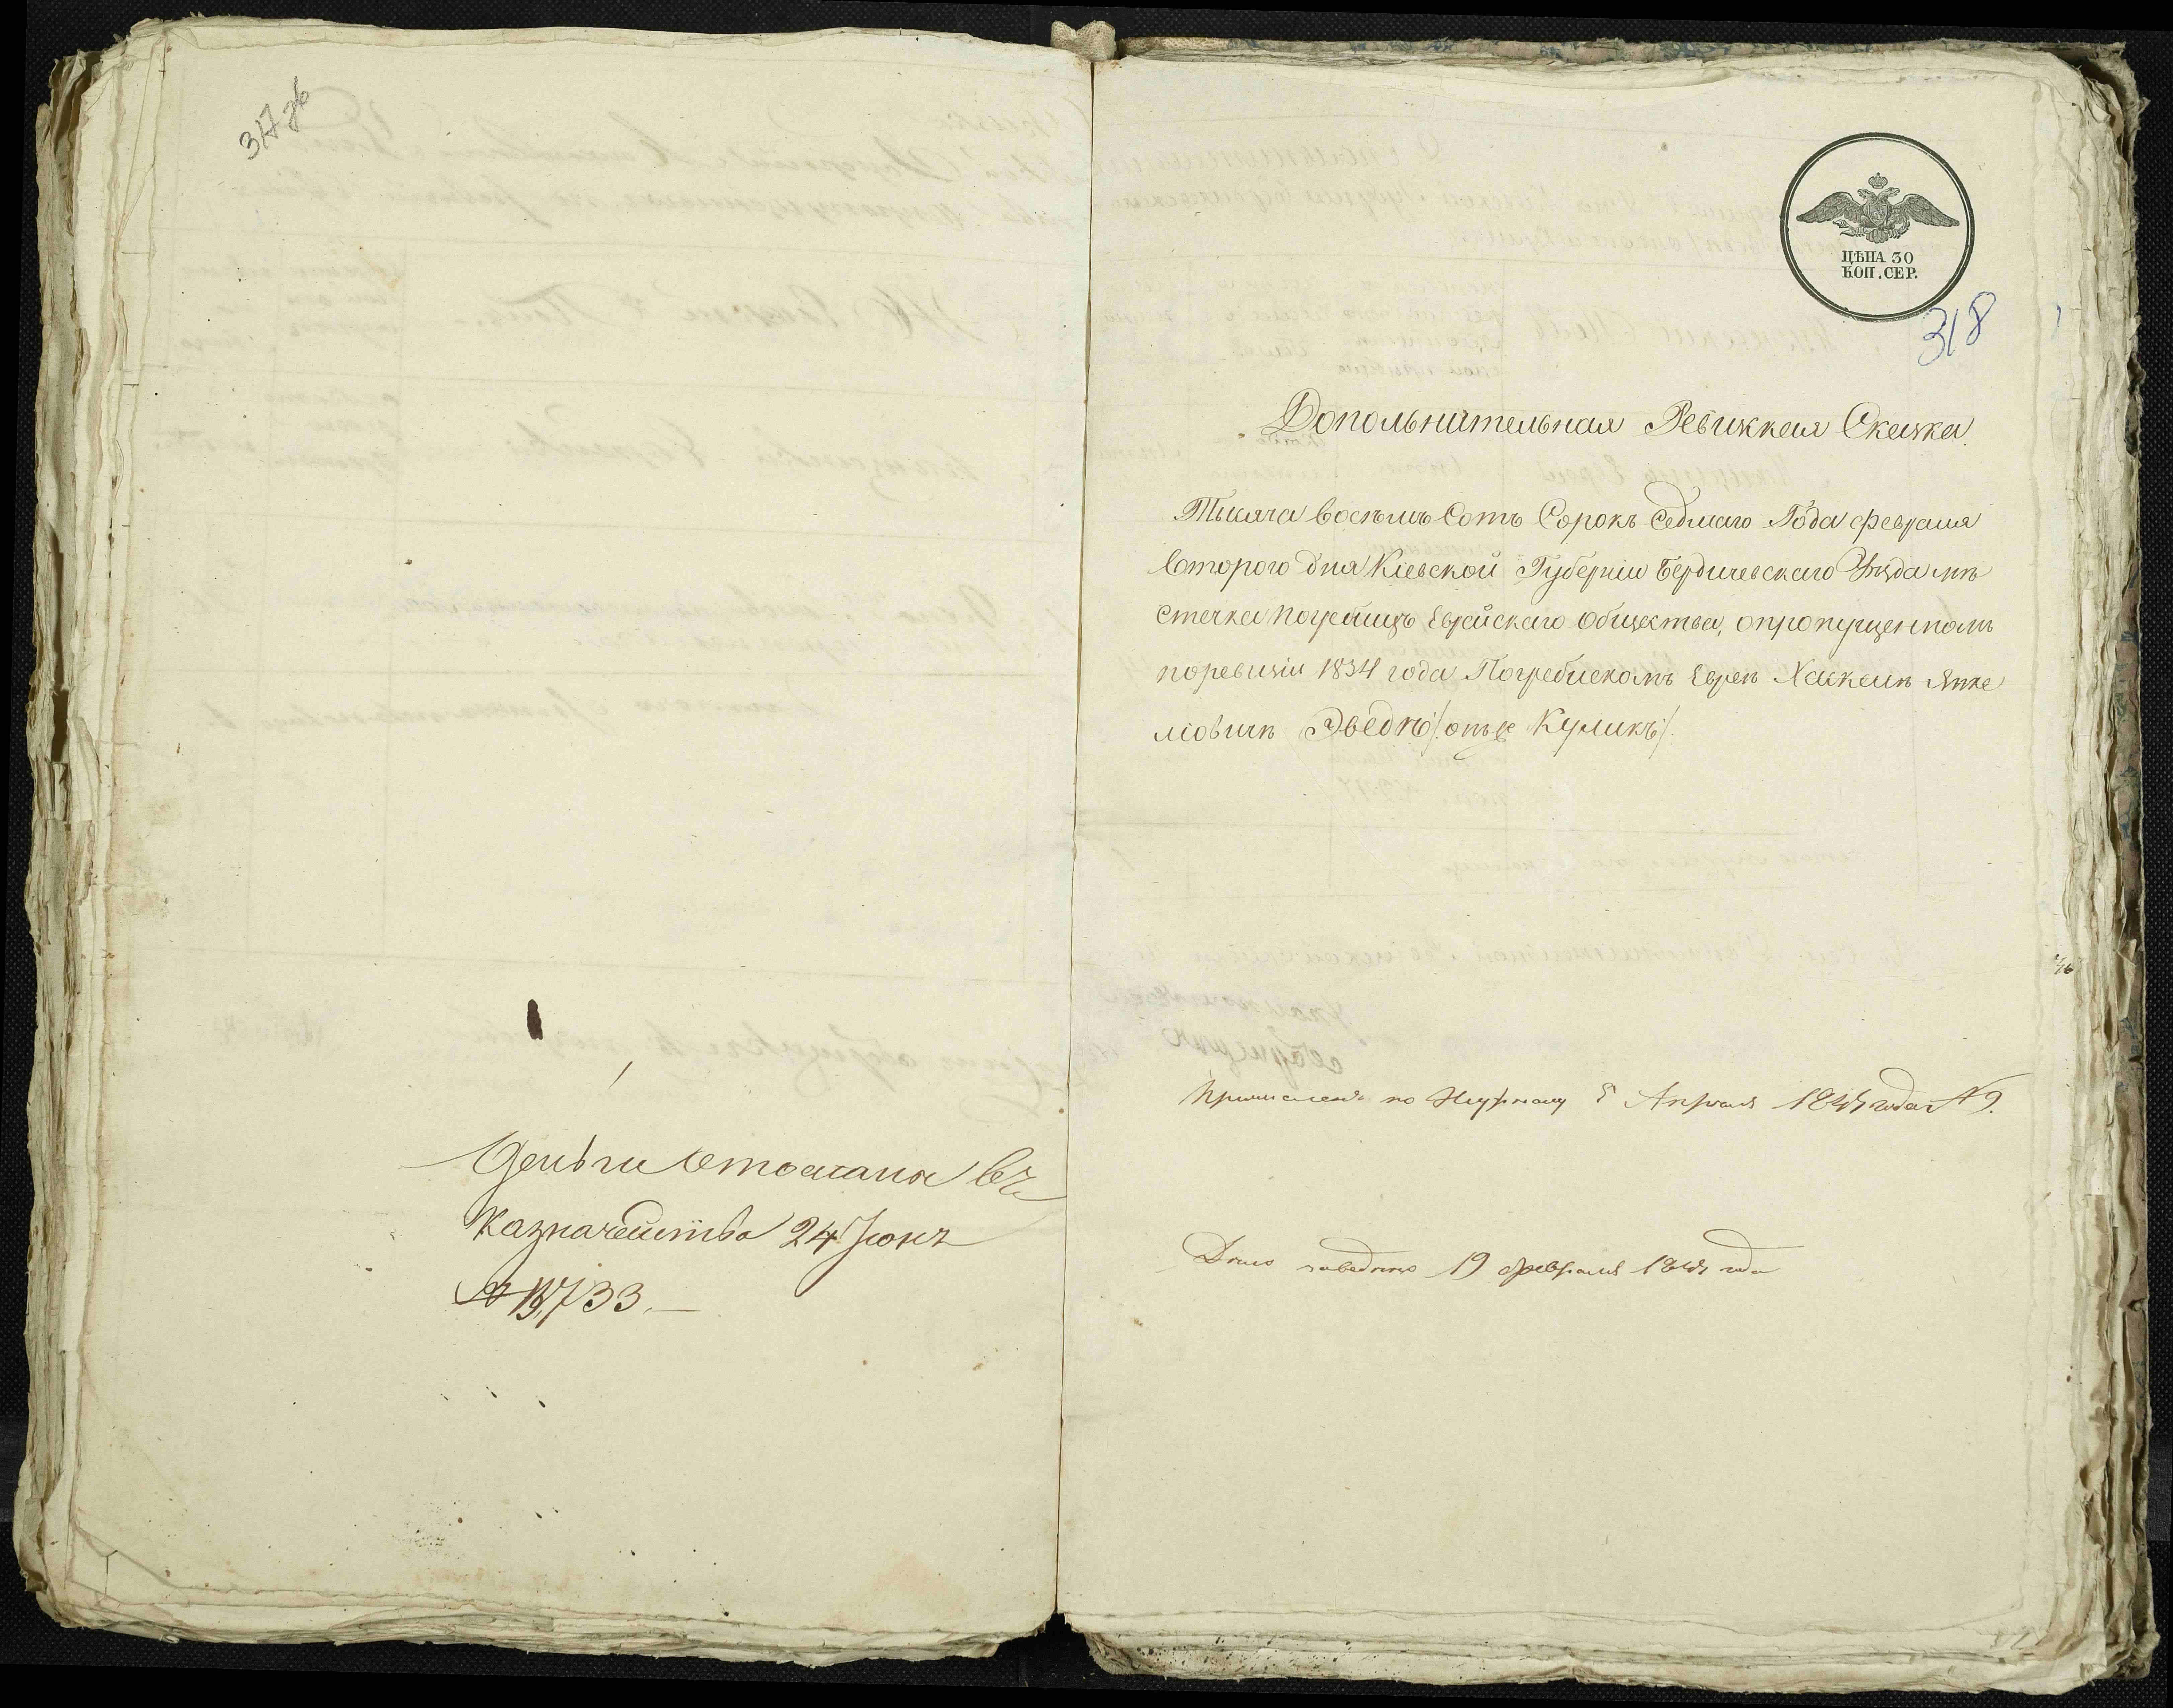 317 зв
Деньги отосланы въ
Казначейство 24 Іюня
№ 733.
ЦѢНА 30
КОП. СЕР.
318
Дополнительная Ревизкая Сказка
Тысяча восемь Сотъ Сорокъ Седмаго Года февраля
второго дня Кіевской Губерніи Бердичевскаго Уѣзда мѣ
стечка Погребищъ Еврейскаго Общества, о пропущенномъ
по ревизіи 1834 года Погребискомъ Евреѣ Хаикелѣ Янке
ліовичѣ онже Куликъ
Причисленъ по Журналу 5 Апрѣля 1847 года № 9.
Дѣло заведено 19 февраля 1847 года